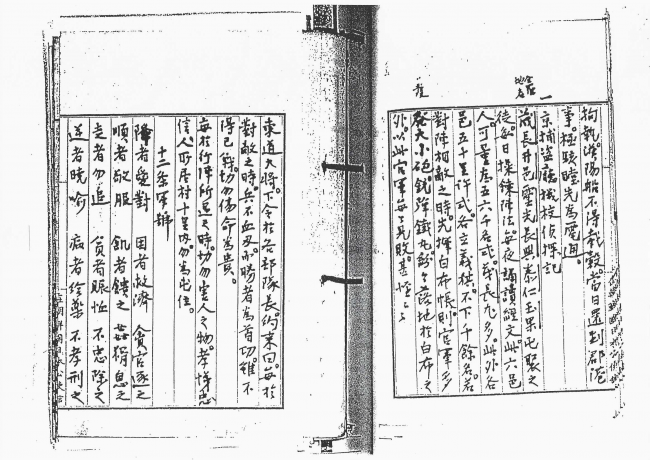 拘執漢陽船不得載穀當日還到郡港
事極駭瞠先爲電通
一京捕盜廳機校偵探記
茂長井邑靈光長興泰仁玉果屯聚之
徒每日操鍊陣法每夜誦讀經文此六邑
人可量居五六千名式茂長尤多此外各
邑五十里許式各立義旗不下千餘名若
對陣相敵之時先揮白布帳則官軍多
發大小砲銃彈鐵丸紛々落地於白布之
外以此官軍每々見敗
東道大將下令於各部隊長約束曰每於
對敵之時兵不血刃而勝者爲首功雖不
得已戰切勿傷命爲貴
每於行陣所過之時切勿害人之物孝悌忠
信人所居村十里內勿爲屯住
十二条軍號
降者愛對 困者救濟 貪官逐之
順者敬服 飢者饋之 姦猾息之
走者勿追 貧者賑恤 不忠除之
逆者曉喩 病者給藥 不孝刑之